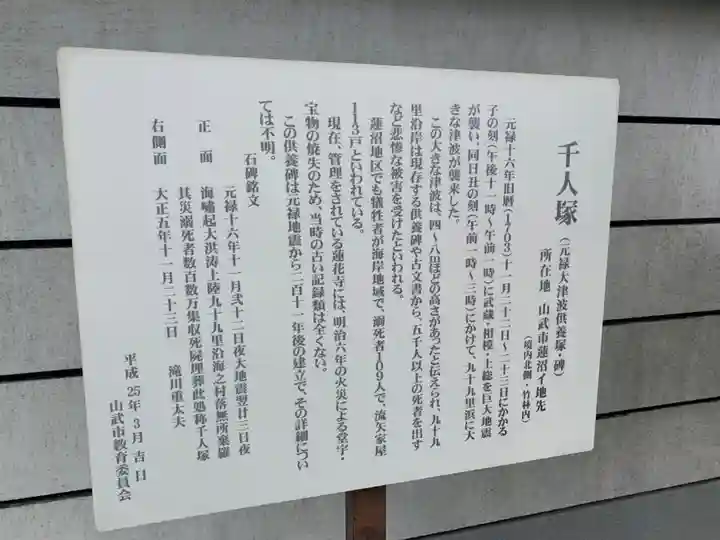 千人塚(元禄大津波供養塚・碑)
所在地 山武市蓮沼イ地先
(境内北側・竹林内)
元禄十六年旧暦(1703)十一月二十二日〜二十三日にかかる
子の刻(午後十一時〜午前一時)に武蔵・相模・上総を巨大地震
が襲い、同日丑の刻(午前一時〜三時)にかけて、九十九里浜に大
きな津波が襲来した。
この大きな津波は、四〜八mほどの高さがあったと伝えられ、九十九
里沿岸は現存する供養碑や古文書から、五千人以上の死者を出す
など悲惨な被害を受けたといわれる。
蓮沼地区でも犠牲者が海岸地域で、溺死者109人で、流矢家屋
113戸といわれている。
現在、管理をされている蓮花寺には、明治六年の火災による堂宇・
宝物の焼失のため、当時の古い記録類は全くない。
この供養碑は元禄地震から二百十一年後の建立で、その詳細につい
ては不明。
石碑銘文
元禄十六年十一月弐十二日夜大地震翌廿三日夜
正面 海嘯起大洪涛上陸九十九里沿海之村落無所棄羅
其災溺死者数百数万集収死屍埋葬此処称千人塚
右側面 大正五年十一月二十三日 滝川重太夫
平成25年3月吉日
山武市教育委員会